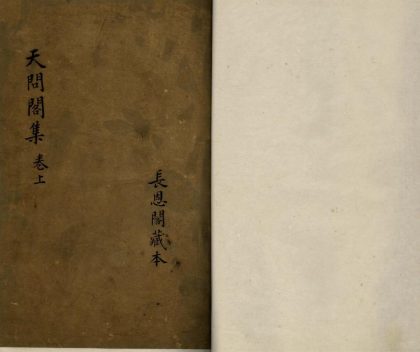 天問閣集 卷上
長恩閣藏本